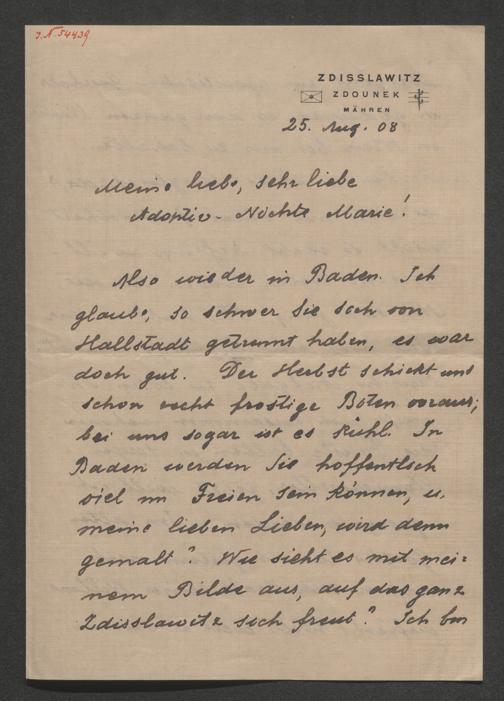 J.N. 54439
ZDISSLAWITZ
ZDOUNEK
MÄHREN
25. Aug. 08
Meine liebe, sehr liebe
Adoptiv-Nichte Marie!
Also wieder in Baden. Ich
glaube, so schwer Sie sich von
Hallstadt getrennt haben, es war
doch gut. Der Herbst schickt uns
schon recht frostige Boten voraus;
bei uns sogar ist es kühl. In
Baden werden Sie hoffentlich
viel im Freien sein können, u.
meine lieben Lieben, wird denn
gemalt? Wie sieht es mit mei=
nem Bilde aus, auf das ganz
Zdisslawitz sich freut? Ich bin